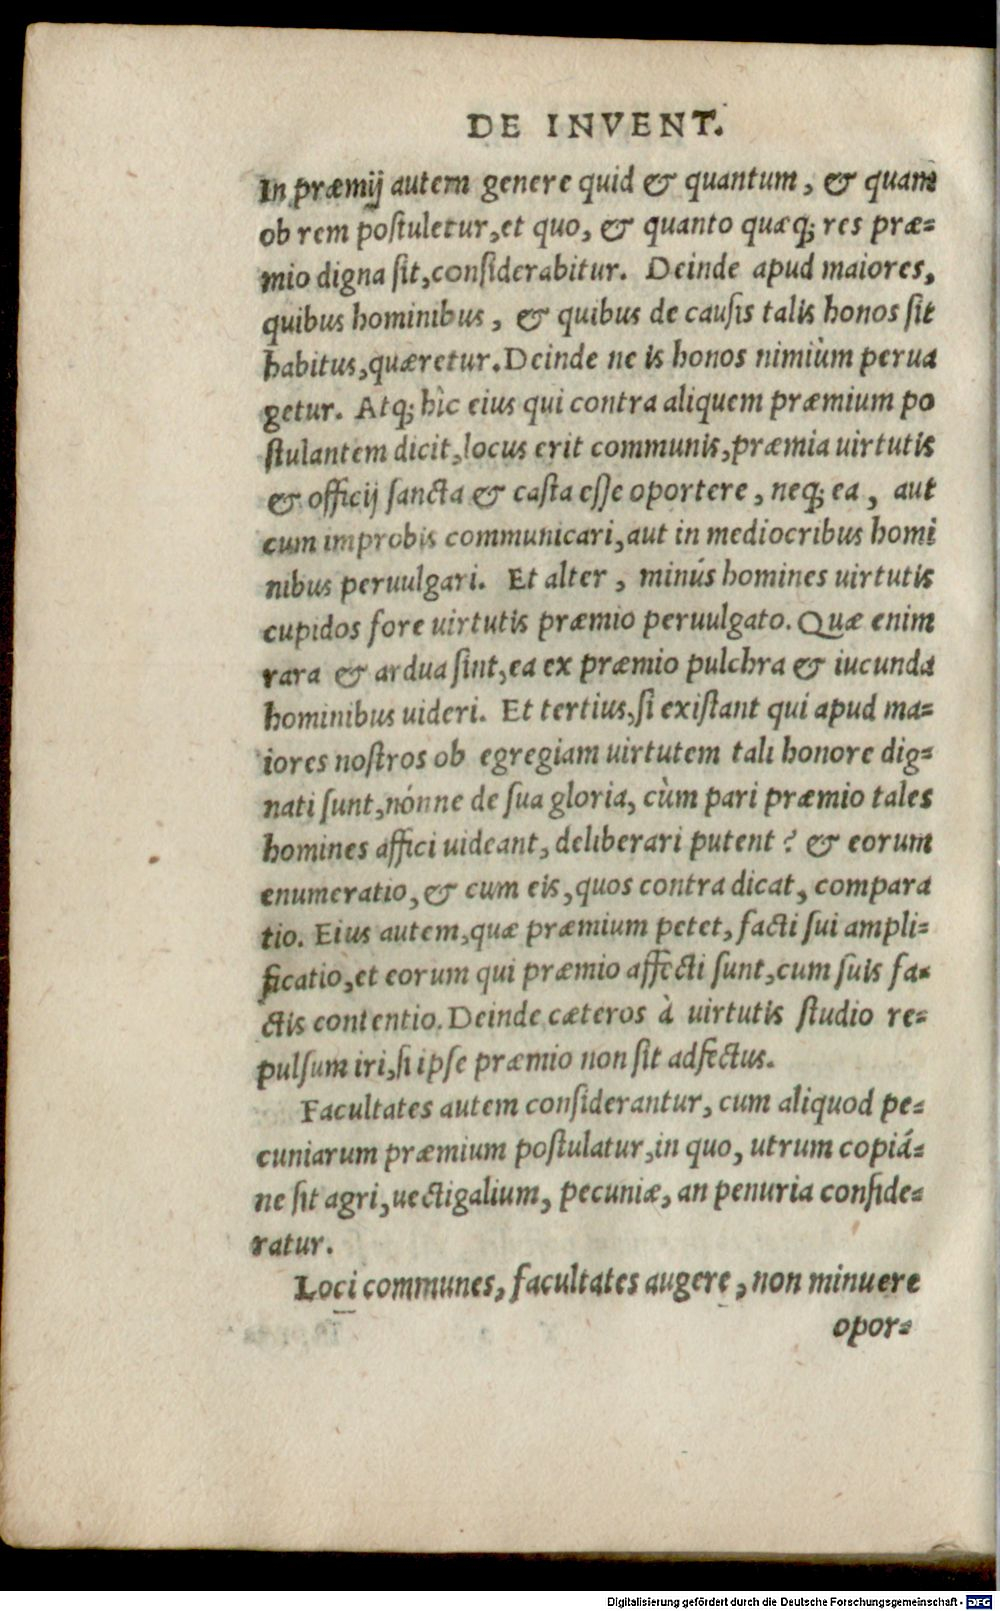 DE INVENT.
In præmij autem genere quid & quantum, & quam
ob rem poſtuletur, et quo, & quanto quæq; res præ-
mio digna ſit, conſiderabitur. Deinde apud maiores,
quibus hominibus, & quibus de cauſis talis honos ſit
habitus, quæretur. Deinde ne is honos nimiùm perua
getur. Atq; hîc eius qui contra aliquem præmium po
ſtulantem dicit, locus erit communis, præmia uirtutis
& officij ſancta & caſta eſſe oportere, neq; ea, aut
cum improbis communicari, aut in mediocribus homi
nibus peruulgari. Et alter, minús homines uirtutis
cupidos fore uirtutis præmio peruulgato. Quæ enim
rara & ardua ſint, ea ex præmio pulchra & iucunda
hominibus uideri. Et tertius, ſi exiſtant qui apud ma-
iores noſtros ob egregiam uirtutem tali honore dig-
nati ſunt, nónne de ſua gloria, cùm pari præmio tales
homines affici uideant, deliberari putent? & eorum
enumeratio, & cum eis, quos contra dicat, compara
tio. Eius autem, quæ præmium petet, facti ſui ampli-
ficatio, et eorum qui præmio affecti ſunt, cum ſuis fa-
ctis contentio. Deinde cæteros à uirtutis ſtudio re-
pulſum iri, ſi ipſe præmio non ſit adfectus.
Facultates autem conſiderantur, cum aliquod pe-
cuniarum præmium poſtulatur, in quo, utrum copiá-
ne ſit agri, uectigalium, pecuniæ, an penuria conſide-
ratur.
Loci communes, facultates augere, non minuere
opor-
Digitalisierung gefördert durch die Deutsche Forschungsgemeinschaft - DFG